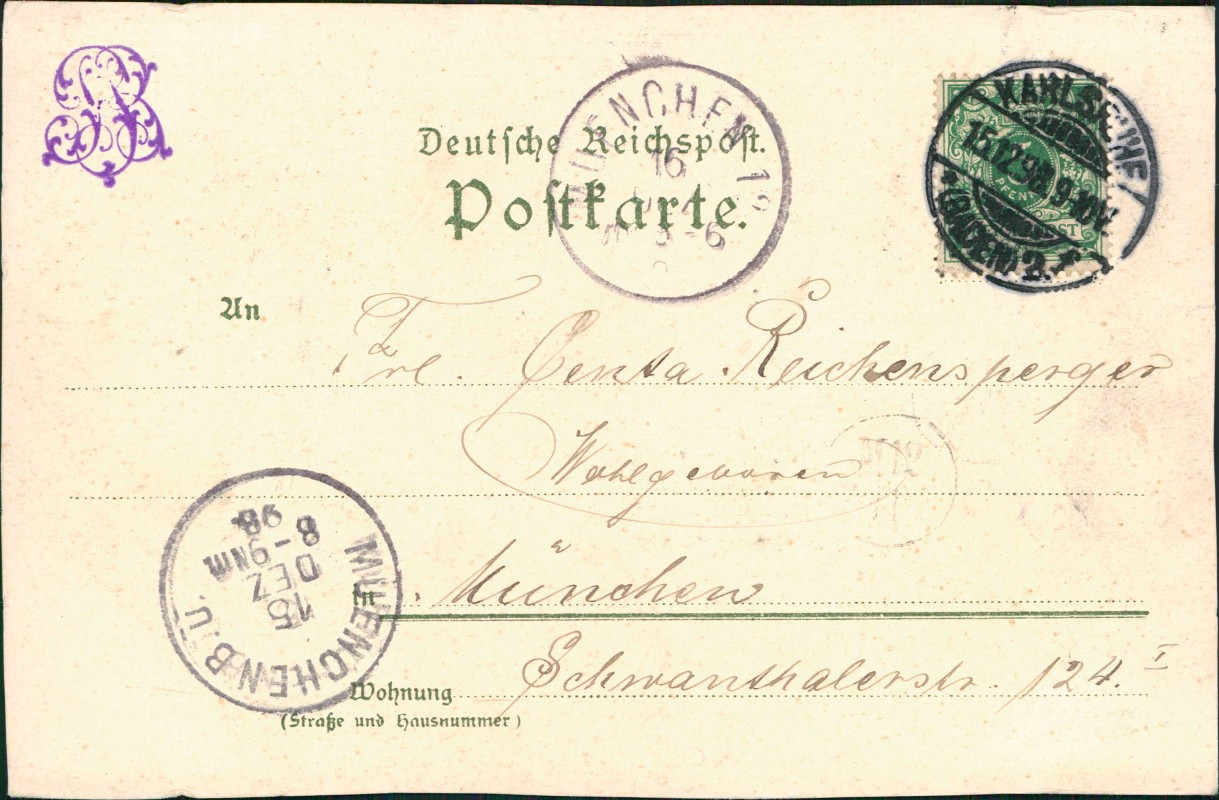 Deutsche Reichspost.
Postkarte.
MUENCHEN 12
16
5-6
KARLSRUHE
15.12.98.9-10V.
*(BADEN) 2.f
An
Frl. Centa Reichensperger
Wohlgeboren
in München
Wohnung Schwanthalerstr. 124. I
(Straße und Hausnummer)
MUENCHEN B.U.
15
DEZ
8-9NM
98.